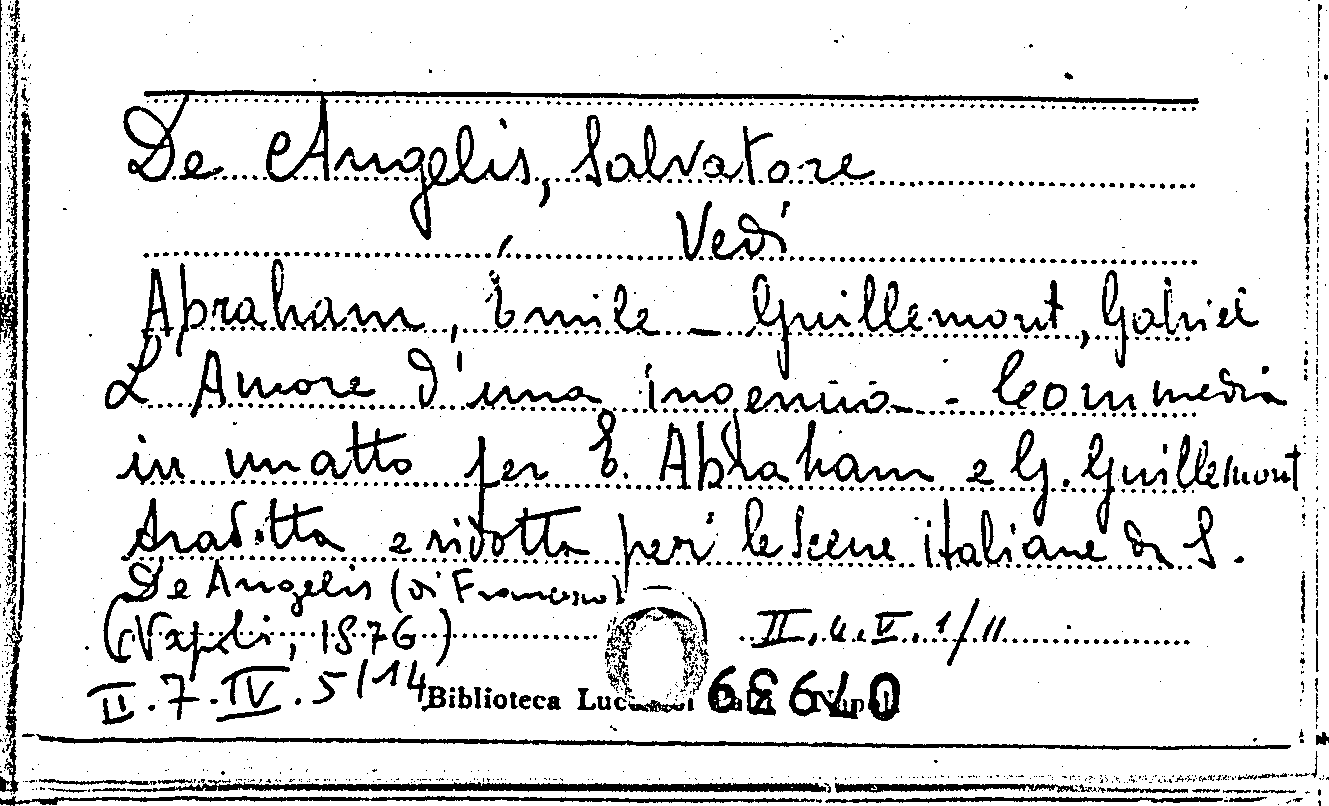 De Angelis, Salvatore
Vedi
Abraham, Émile - Guillemont, Gabriel
L'Amore d'una ingenua - Commedia
in un atto per E. Abraham e G. Guillemont
tradotta e ridotta per le Scene italiane da S.
De Angelis (di Francesco)
(Napoli, 1876)
II.4.V.1/11
II.7.IV.5/14
Biblioteca Lucchesi Palli Napoli
68640